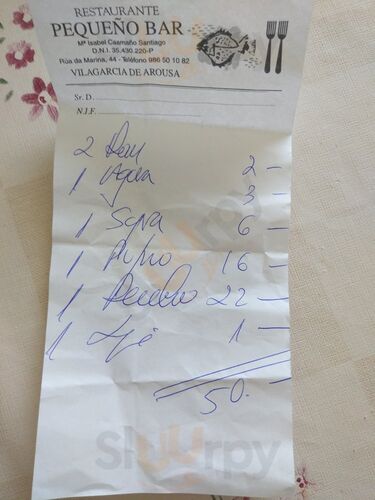 RESTAURANTE
PEQUEÑO BAR
Mª Isabel Caamaño Santiago
D.N.I. 35.430.220-P
Rúa da Marina, 44 - Teléfono 986 50 10 82
VILAGARCIA DE AROUSA
Sr. D.
N.I.F.
2 Pan 2 —
1 Agua 3 —
1 Sopa 6 —
1 16 —
1 22 —
1 1 —
50.—
Slurpy